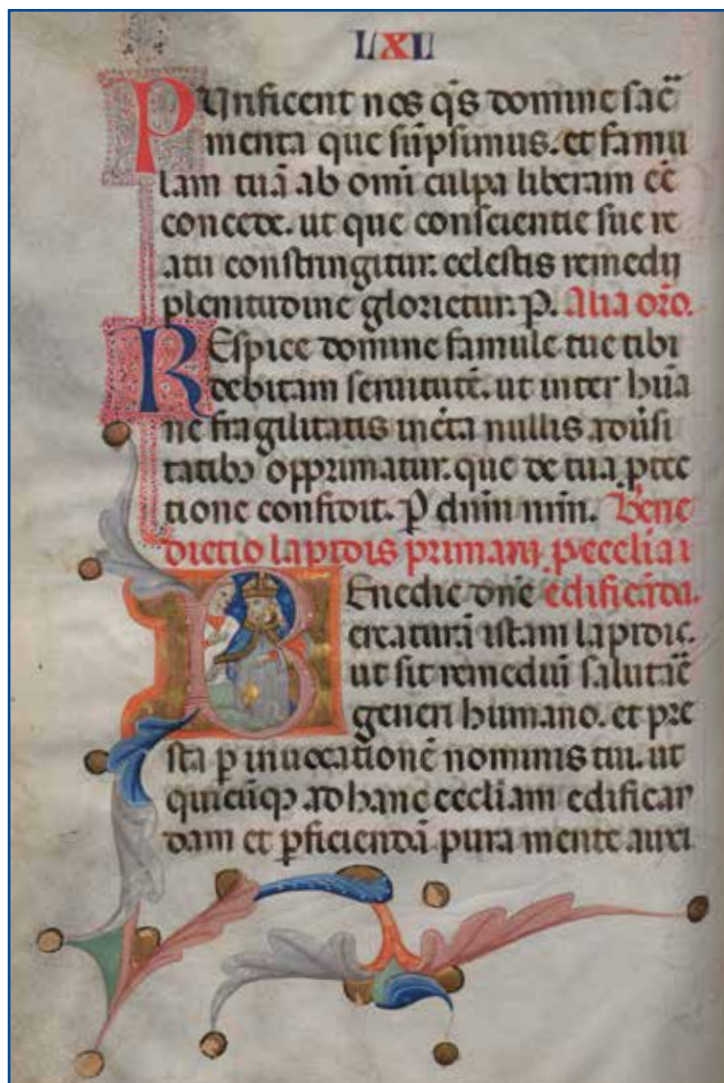 LXL
PUrificent nos q̄s domine sac̄
menta que sūpsimus. et famu
lam tuā ab omī culpa liberam eē
concede. ut que conscientie sue re
atu constringitur. celestis remedij
plenitudine glorietur. P. Alia or̄o.
REspice domine famule tue tibi
debitam seruitutē. ut inter hūa
ne fragilitatis incta nullis aduersi
tatibꝰ opprimatur. que de tua ꝓtec
tione confidit. P̄ dnm nrm. Bene
dictio lapidis primarij ꝓ ecclia
BEnedic dne edificāda.
creaturā istam lapidic.
ut sit remediū salutaē
generi humano. et pre
sta ꝑ inuocationē nominis tui. ut
quicūqꝫ ad hanc eccliam edifican
dam et ꝑficiendā pura mente auxi